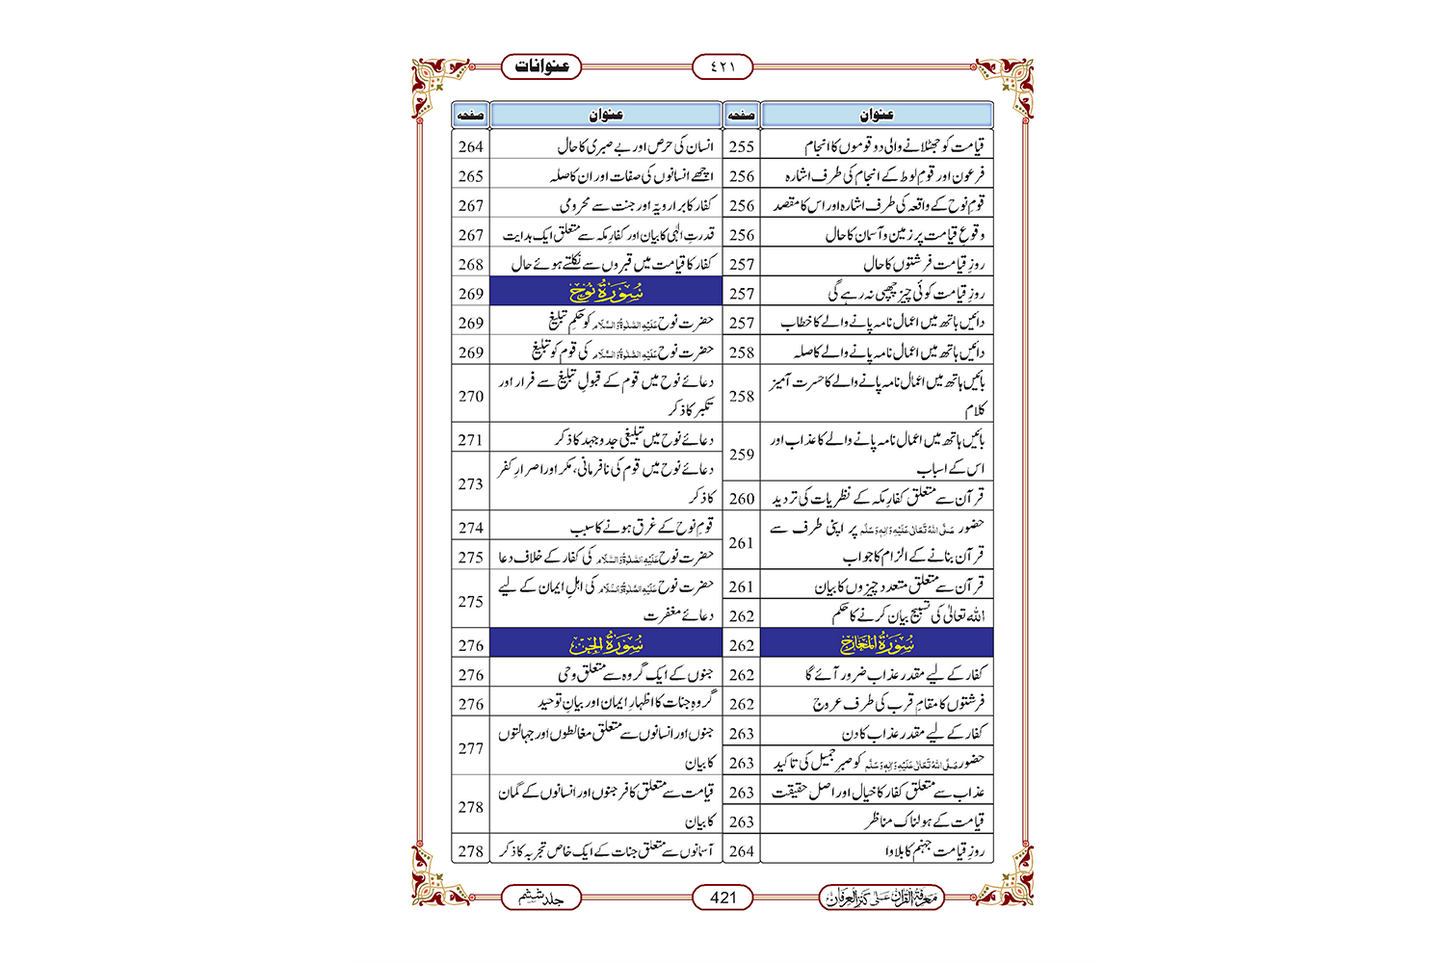 عنوانات
٤٢١
عنوان صفحہ
قیامت کو جھٹلانے والی دو قوموں کا انجام 255
فرعون اور قومِ لوط کے انجام کی طرف اشارہ 256
قومِ نوح کے واقعہ کی طرف اشارہ اور اس کا مقصد 256
وقوعِ قیامت پر زمین و آسمان کا حال 256
روزِ قیامت فرشتوں کا حال 257
روزِ قیامت کوئی چیز چھپی نہ رہے گی 257
دائیں ہاتھ میں اعمال نامہ پانے والے کا خطاب 257
دائیں ہاتھ میں اعمال نامہ پانے والے کا صلہ 258
بائیں ہاتھ میں اعمال نامہ پانے والے کا حسرت آمیز
کلام 258
بائیں ہاتھ میں اعمال نامہ پانے والے کا عذاب اور
اس کے اسباب 259
قرآن سے متعلق کفارِ مکہ کے نظریات کی تردید 260
حضور صَلَّی اللہُ تَعَالٰی عَلَیْہِ وَاٰلِہٖ وَسَلَّم پر اپنی طرف سے
قرآن بنانے کے الزام کا جواب 261
قرآن سے متعلق متعدد چیزوں کا بیان 261
اللہ تعالیٰ کی تسبیح بیان کرنے کا حکم 262
سُوْرَۃُ الْمَعَارِج 262
کفار کے لیے مقدر عذاب ضرور آئے گا 262
فرشتوں کا مقامِ قرب کی طرف عروج 262
کفار کے لیے مقدر عذاب کا دن 263
حضور صَلَّی اللہُ تَعَالٰی عَلَیْہِ وَاٰلِہٖ وَسَلَّم کو صبرِ جمیل کی تاکید 263
عذاب سے متعلق کفار کا خیال اور اصل حقیقت 263
قیامت کے ہولناک مناظر 263
روزِ قیامت جہنم کا بلاوا 264
عنوان صفحہ
انسان کی حرص اور بے صبری کا حال 264
اچھے انسانوں کی صفات اور ان کا صلہ 265
کفار کا برا رویہ اور جنت سے محرومی 267
قدرتِ الٰہی کا بیان اور کفارِ مکہ سے متعلق ایک ہدایت 267
کفار کا قیامت میں قبروں سے نکلتے ہوئے حال 268
سُوْرَۃُ نُوْح 269
حضرت نوح عَلَیْہِ الصَّلٰوۃُ وَالسَّلَام کو حکمِ تبلیغ 269
حضرت نوح عَلَیْہِ الصَّلٰوۃُ وَالسَّلَام کی قوم کو تبلیغ 269
دعائے نوح میں قوم کے قبولِ تبلیغ سے فرار اور
تکبر کا ذکر 270
دعائے نوح میں تبلیغی جدوجہد کا ذکر 271
دعائے نوح میں قوم کی نافرمانی، مکر اور اصرارِ کفر
کا ذکر 273
قومِ نوح کے غرق ہونے کا سبب 274
حضرت نوح عَلَیْہِ الصَّلٰوۃُ وَالسَّلَام کی کفار کے خلاف دعا 275
حضرت نوح عَلَیْہِ الصَّلٰوۃُ وَالسَّلَام کی اہلِ ایمان کے لیے
دعائے مغفرت 275
سُوْرَۃُ الْجِنّ 276
جنوں کے ایک گروہ سے متعلق وحی 276
گروہِ جنات کا اظہارِ ایمان اور بیانِ توحید 276
جنوں اور انسانوں سے متعلق مغالطوں اور جہالتوں
کا بیان 277
قیامت سے متعلق کافر جنوں اور انسانوں کے گمان
کا بیان 278
آسمانوں سے متعلق جنات کے ایک خاص تجربہ کا ذکر 278
مَعْرِفَۃُ الْقُرْاٰن عَلٰی کَنْزُ الْعِرْفَان
421
جلد ششم